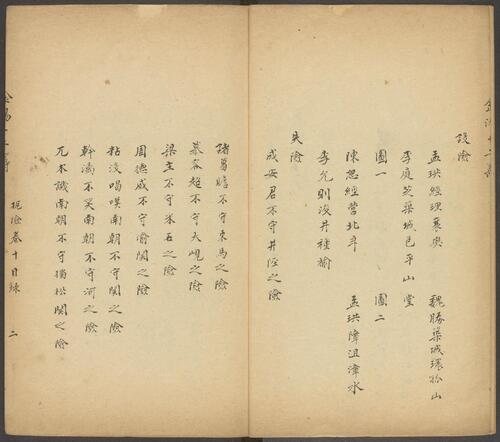 設險
孟珙經理襄奧 魏勝築城環於山
李庭芝築城邑平山堂
圖一 圖二
陳思經營北平 孟珙障沮漳水
李允則浚井種榆
失險
成安君不守井陘之險
諸葛瞻不守束馬之險
慕容超不守大峴之險
梁主不守采石之險
周德威不守渝關之險
粘沒喝嘆南朝不守關之險
幹离不笑南朝不守河之險
兀朮譏南朝不守獨松關之險
扼險卷十目錄 二